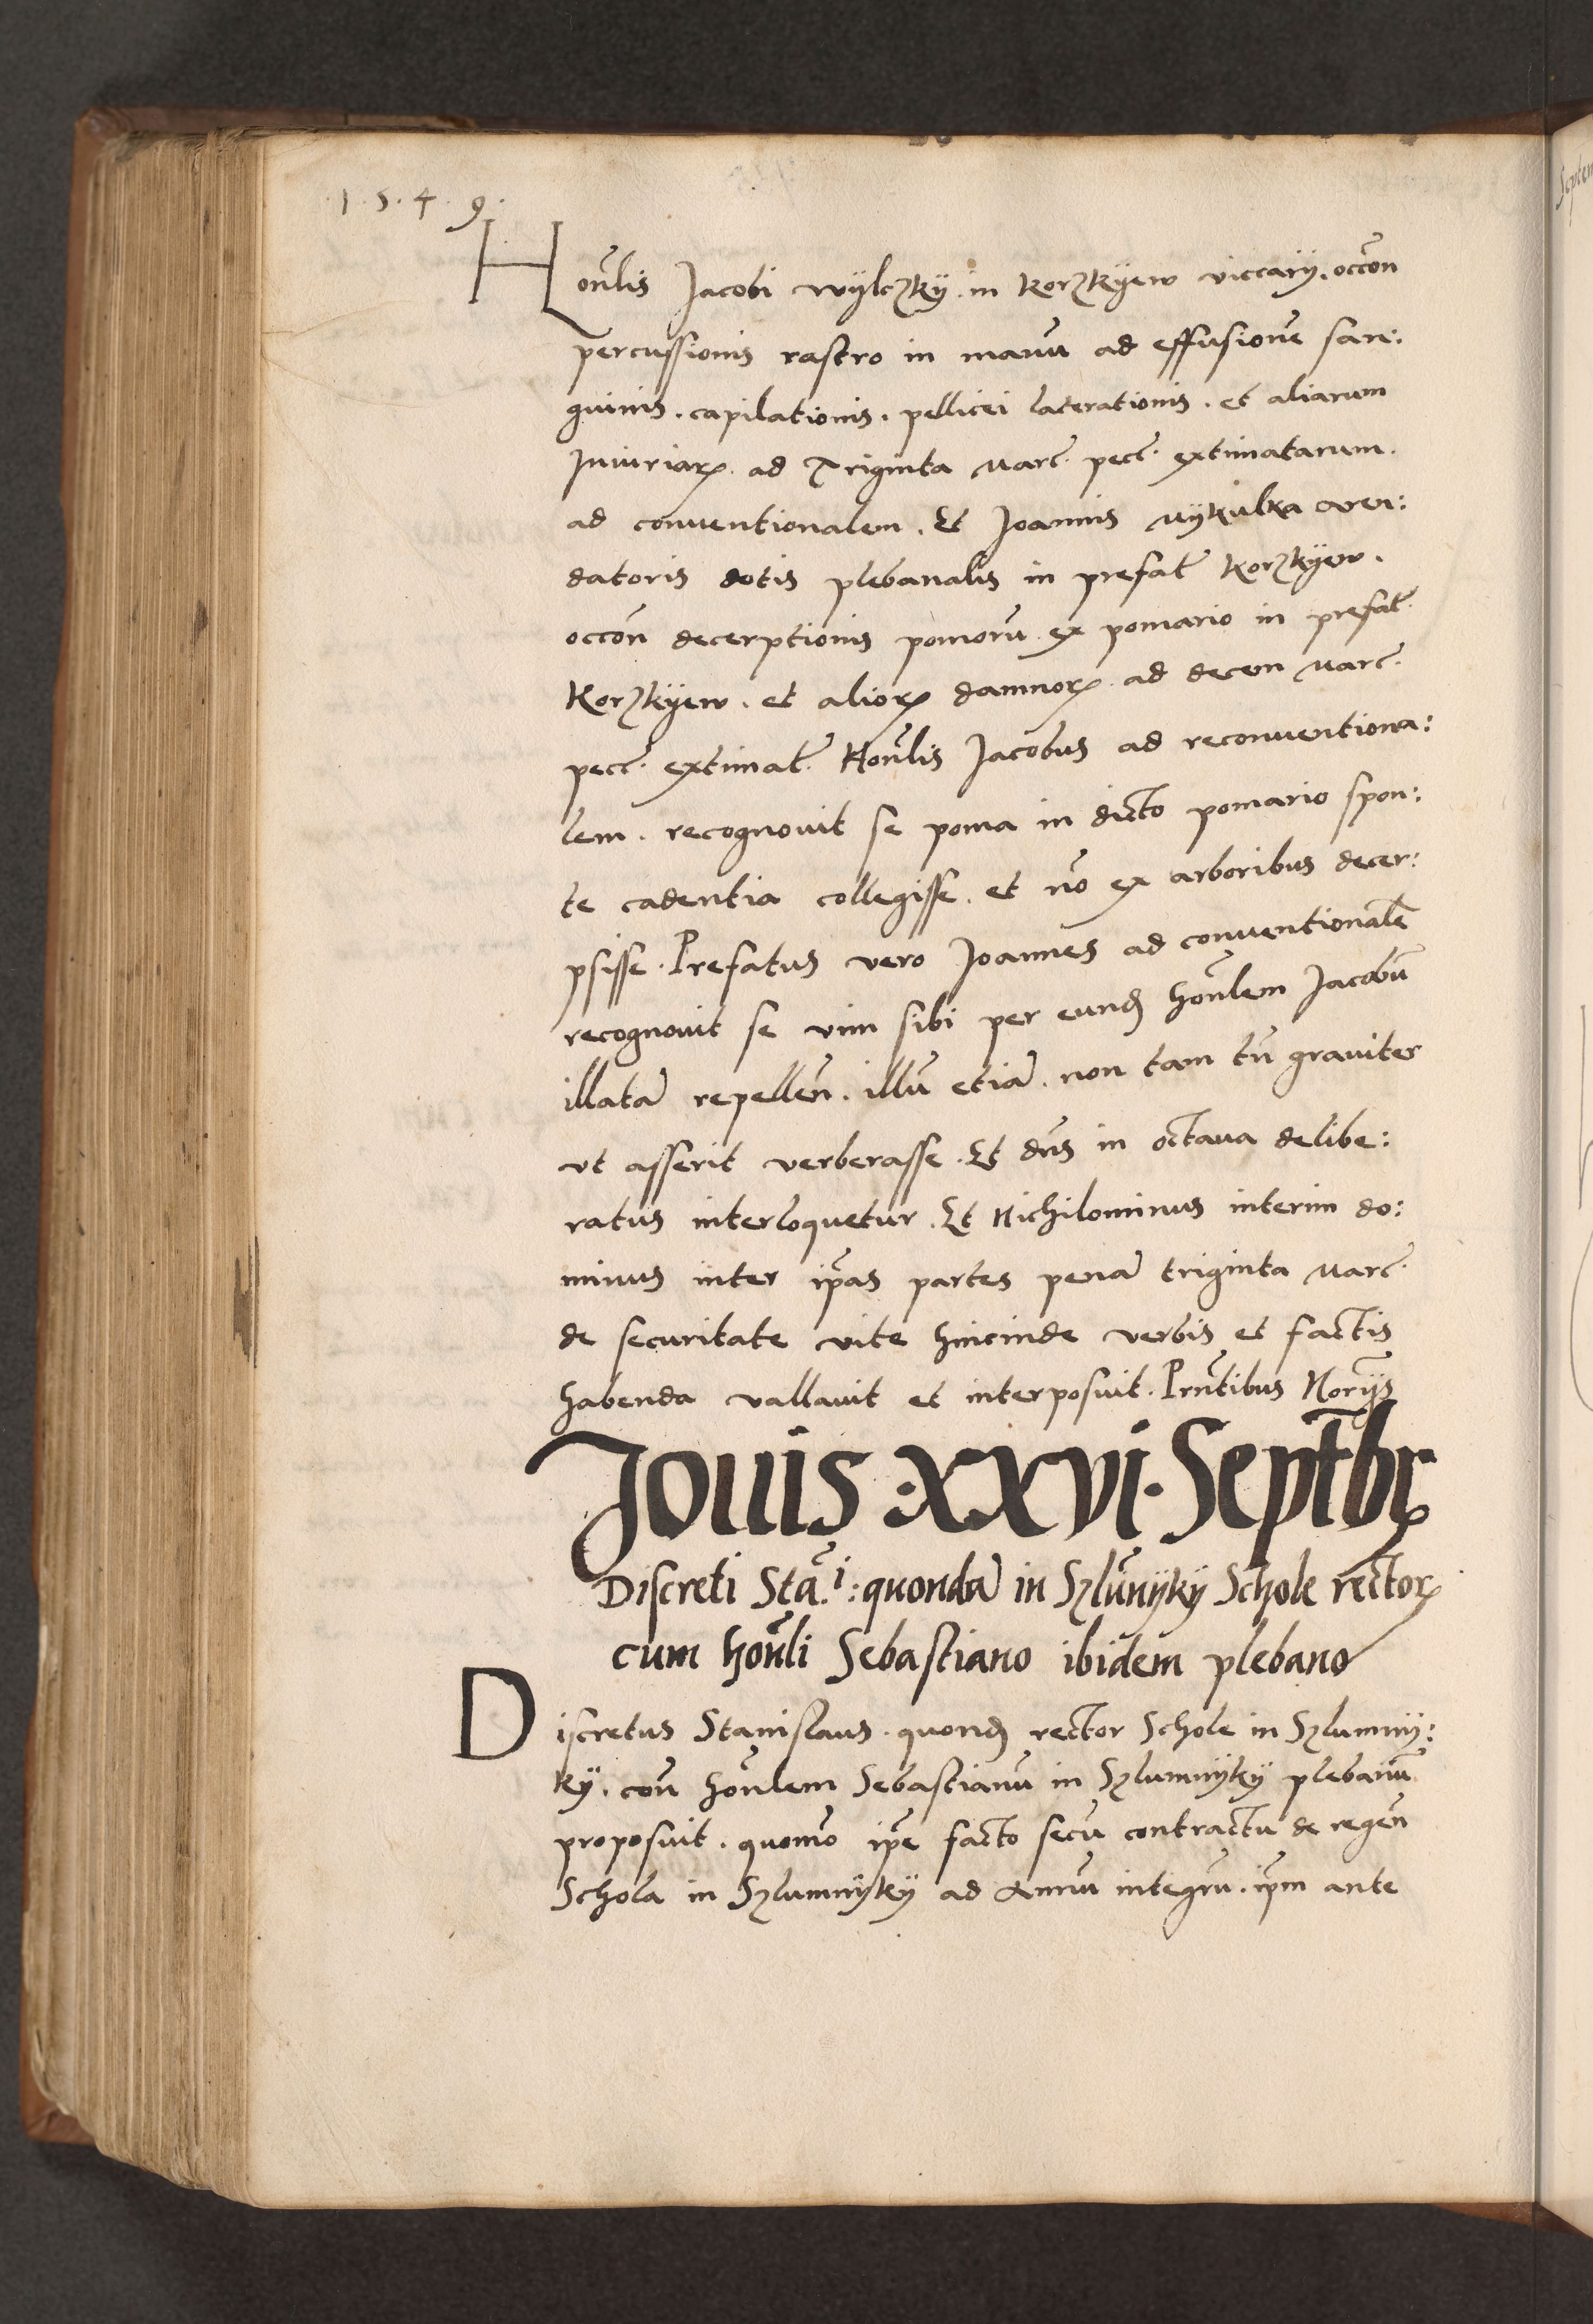 .1.5.4.9.
Honñlis Jacobi wÿlczkÿ in Korzkÿew viccarÿ. occõn
percussionis rastro in manũ ad effusionẽ san:
guinis. capilationis. pellicei laterationis. et aliarum
Iniuriaꝝ. ad Triginta marc̃. pecc̃. extimatarum.
ad conventionalem. Et Joannis Mÿkulka aren:
datoris dotis plebanalis in prefat̃ Korzkÿew.
occõn decerptionis pomorũ ex pomario in prefat̃.
Korzkÿew. et alioꝝ damnoꝝ. ad decem marc̃.
pecc̃. extimat̃. Honñlis Jacobus ad reconuentiona:
lem. recognouit se poma in dicto pomario spon:
te cadentia collegisse. et nõ ex arboribus decer:
psisse. Prefatus vero Joannes ad conuentionalẽ
recognouit se vim sibi per eund̃ honñlem Jacobũ
illatã repelleñ. illũ etiã. non tam tñ grauiter
vt asserit verberasse. Et dñs in octaua delibe:
ratus interloquetur. Et Nichilominus interim do:
minus inter ip̃as partes penã triginta marc̃.
de securitate vite hincinde verbis et factis
habenda vallauit et interposuit. Prñtibus Norÿs
Jouis .xxvi. Septẽbꝝ
Discreti Stãi: quondã in Szlũnÿkÿ Schole rectoꝝ
cum honñli Sebastiano ibidem plebano
Discretus Stanislaus. quond̃ rector Schole in Szlumnÿ:
kÿ. con honñlem Sebastianũ in Szlumnÿkÿ plebanũ
proposuit. quomõ ip̃e facto secũ contractu de regeñ
Schola in Szlumnÿkÿ ad annũ integrũ. ip̃m ante